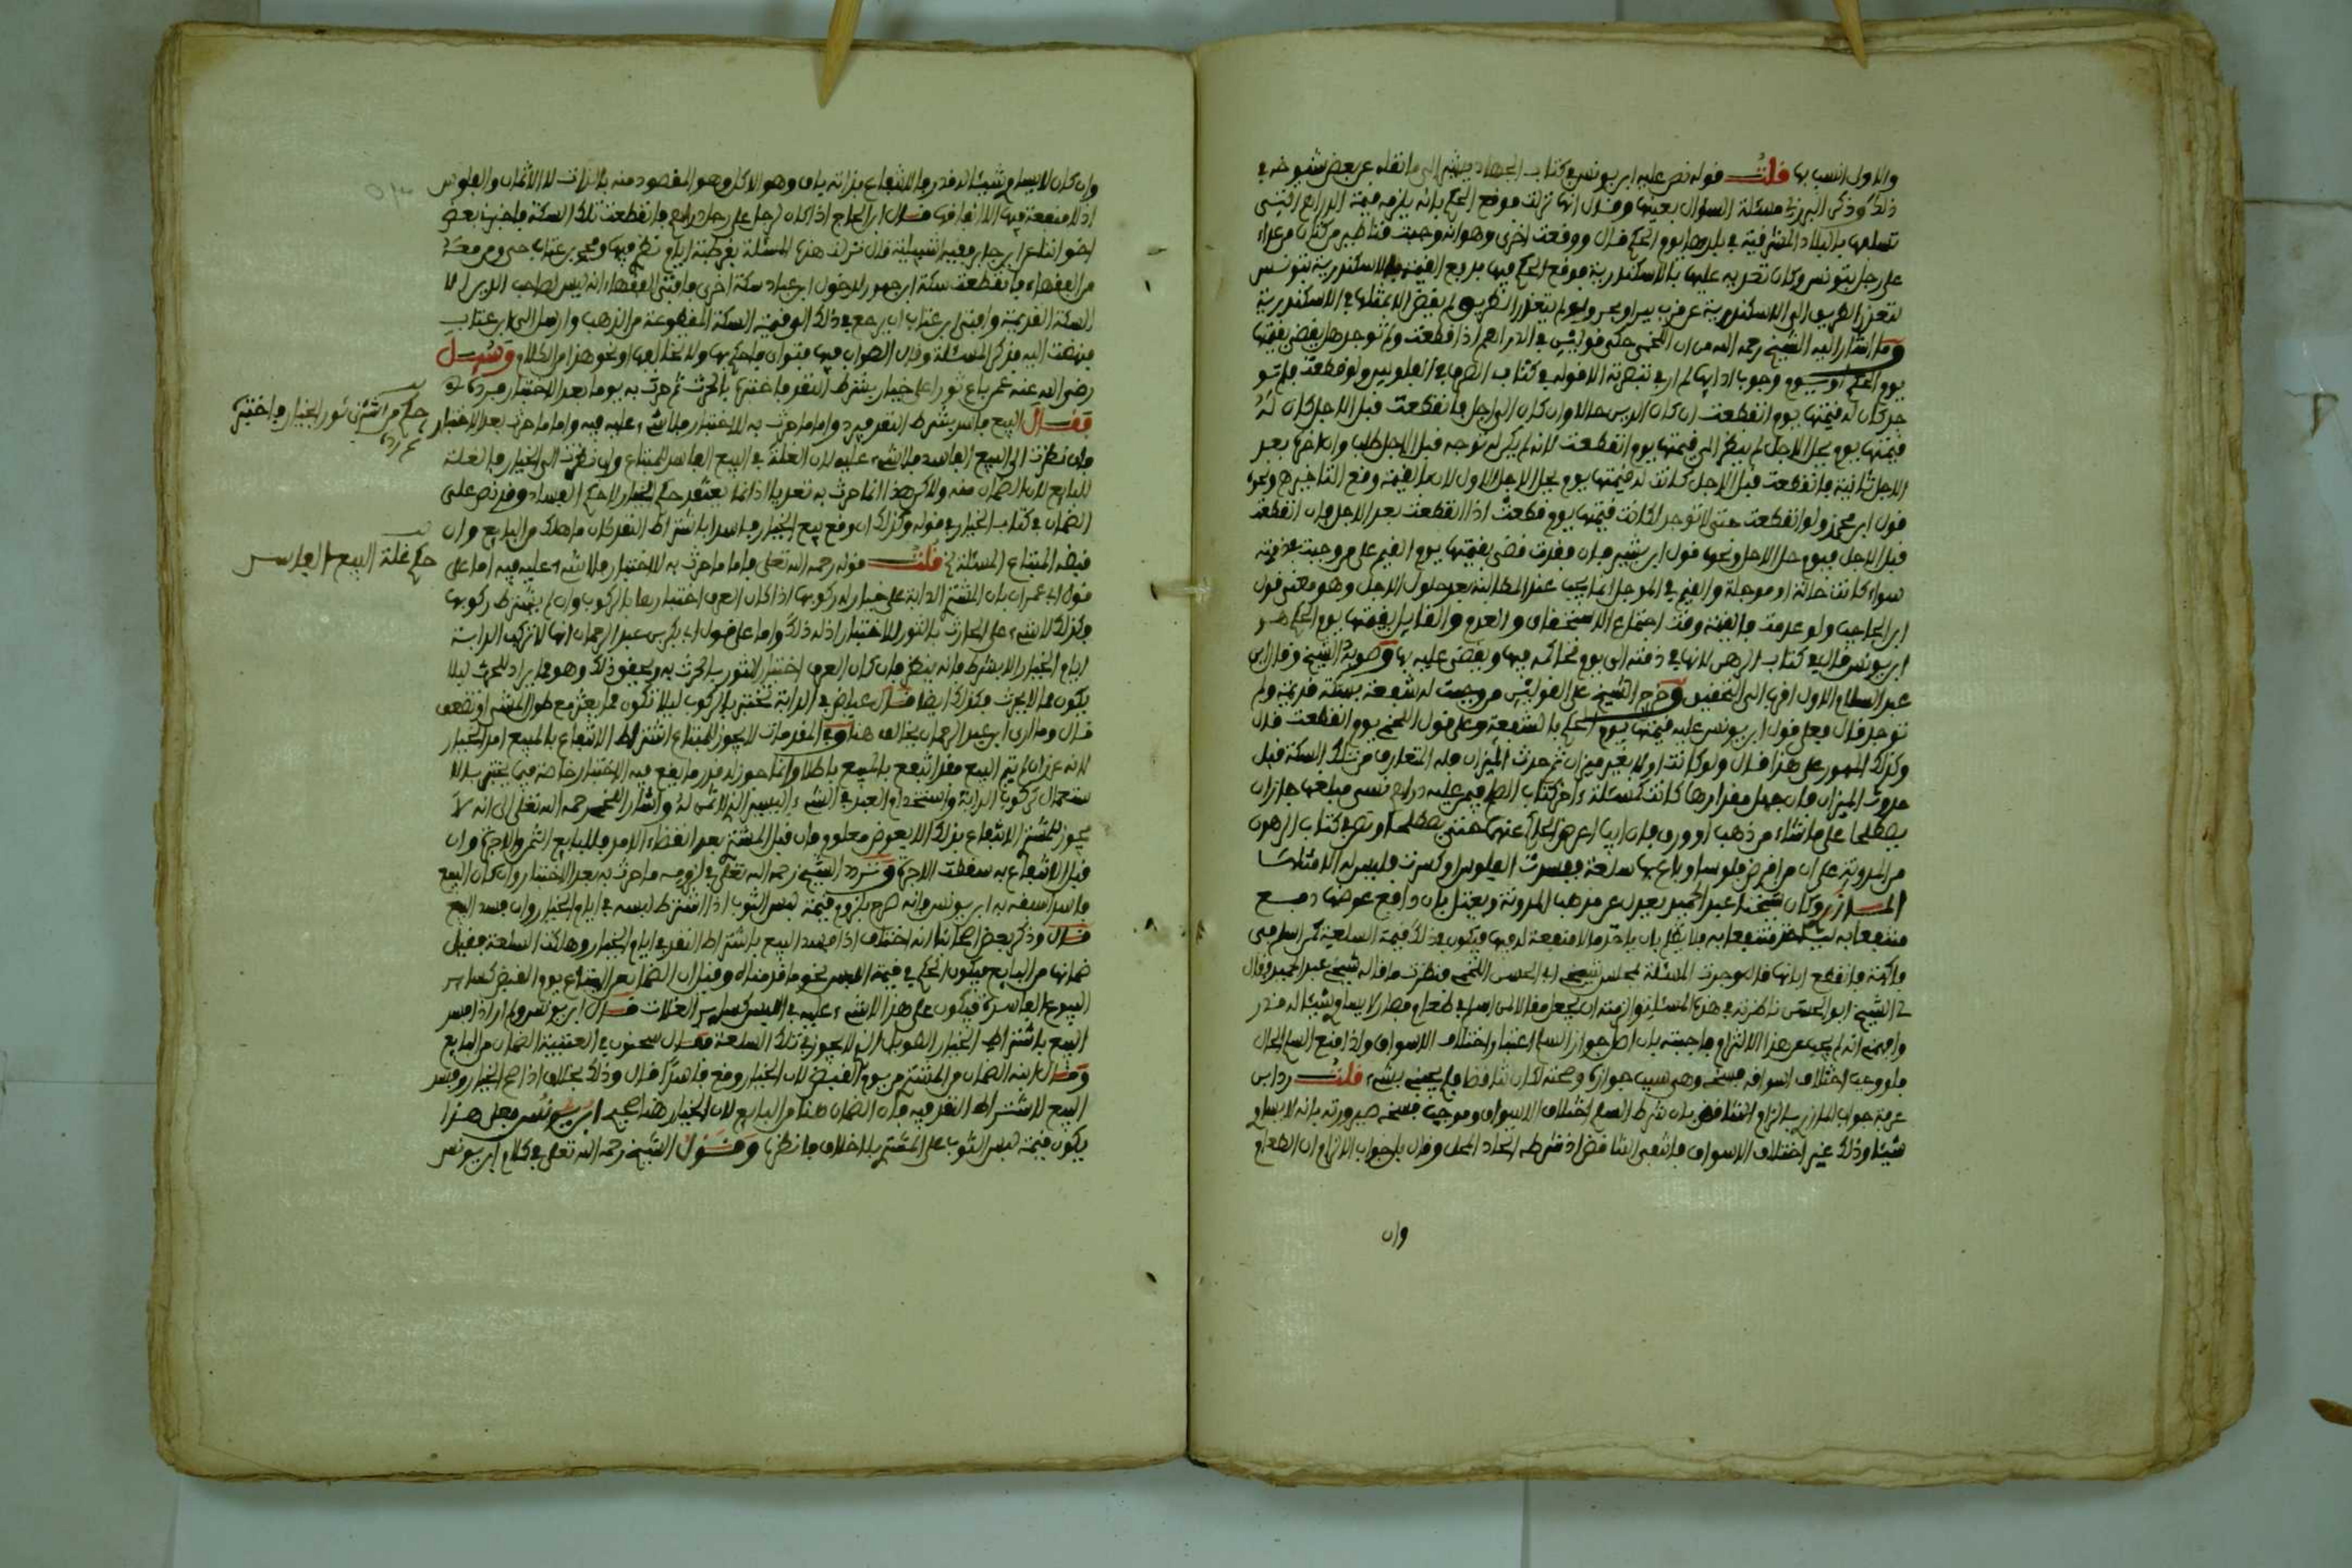 والاول انسب بها قلت قوله نص عليه ابن يونس في كتاب الجهاد يشير الى ما نقله عن بعض شيوخه في
ذلك وذكر البرزلي مسئلة السؤال بعينها وقال انها نزلت فوقع الحكم بانه يلزمه قيمة الدراهم التي
تسلمها بالبلاد المشرقية في بلدها يوم الحكم قال ووقعت اخرى وهو انه وجبت قناطير من كتان من غدا
على رجل بتونس وكان تعدى به عليها بالاسكندرية فوقع الحكم فيها بدفع القيمة بالاسكندرية بتونس
لتعذر الطريق الى الاسكندرية عن قرب برا وبحرا ولو لم يتعذر الطريق لم يقض الا بمثلها في الاسكندرية
وما اشار اليه الشيخ رحمه الله من ان اللخمي حكى قولين في الدراهم اذا قطعت ولم توجد هل يقضى بقيمتها
يوم الحكم او يوم وجوب ادائها لم ار في تبصرته الا قوله في كتاب الصرف في الفلوس ولو قطعت فلم تو
جد كان له قيمتها يوم انقطعت ان كان الدين حالا وان كان الى اجل فانقطعت قبل الاجل كان له
قيمتها يوم يحل الاجل لم ينظر الى قيمتها يوم انقطعت لانه لم يكن له توجه قبل الاجل طلب وان اخرها بعد
الاجل ثانية فانقطعت قبل الاجل كانت له قيمتها يوم يحل الاجل الاول لان بالقيمة وقع التاخير ونحوه
قول ابن محرز ولو انقطعت حتى لا توجد لكانت قيمتها يوم قطعت اذا انقطعت بعد الاجل فان انقطعت
قبل الاجل فيوم حل الاجل ونحوها قول ابن بشير فان فقدت قضى بقيمتها يوم القيم على من وجبت بذمته
سواء كانت حالة او موجلة والقيم في الموجل انما يجب عند المطالبة بعد حلول الاجل وهو معنى قول
ابن الحاجب ولو عدمت فالقيمة وقت اجتماع الاستحقاق والعدم والقايل بقيمتها يوم الحكم هو
ابن يونس قاله في كتاب الرهن لانها في ذمته الى يوم يحاكمه فيها ويقضى عليه بها وصوبه الشيخ وقال ابن
عبد السلام الاول اقرب الى التحقيق وخرج الشيخ على القولين من وجبت له شفعة بسكة قديمة ولم
توجد قال فعلى قول ابن يونس عليه قيمتها يوم الحكم بالشفعة وعلى قول اللخمي يوم انقطعت قال
وكذلك المهور على هذا قال ولو كانت اولا بغير ميزان ثم حدث الميزان فله المتعارف من تلك السكة قبل
حدوث الميزان فان جهل مقدارها كانت كمسئلة اخر كتاب الصلح فيمن عليه دراهم نسي مبلغها جاز ان
يصطلحا على ما شاء من ذهب او ورق فان ابيا اعرض الحاكم عنهما حتى يصطلحا ونص في كتاب الرهون
من المدونة على ان من اقرض فلوسا او باع بها سلعة ففسدت الفلوس او كسدت فليس له الا مثلها
المازري وكان شيخنا عبد الحميد يعدل عن مذهب المدونة ويعتل بان دافع عوضها دفع
منتفعا به لياخذ منتفعا به فلا يظلم بان ياخذ ما لا منفعة له فيها فيكون في ذلك قيمة السلعة كمن اسلم في
فاكهة فانقطع ابانها قال وجرت المسئلة بمجلس شيخي ابي الحسن اللخمي فنظرت ما قاله شيخي عبد الحميد وقال
لي الشيخ ابو الحسن ناظرته في هذه المسئلة والزمته ان يجعل مقالا لمن اسلم في طعام فصار لا يساوي شيئا له قدر
وافهمني انه لم يجب عن هذا الالتزام فاجبته بان اصل جواز السلم اعتبار اختلاف الاسواق واذا منع السلم الحال
فلو وجب اختلاف اسواقه فسخه وهي سبب جوازه وصحته لكان تناقضا فلم يجبني بشيء قلت رد ابن
عرفة جواب المازري بالزام التناقض بان شرط السلم اختلاف الاسواق وموجب فسخه صيرورته بانه لا يساوي
شيئا وذلك غير اختلاف الاسواق فانتفى التناقض اذ شرطه اتحاد المحل وقال بل جواب الالزام ان الطعام
وان
وان كان لا يساوي شيئا له قدر فالانتفاع بذاته باق وهو الاكل وهو المقصود منه بالذات لا الاثمان والفلوس
اذ لا منفعة فيها الا انفاقها قال ابن الحاج اذا كان لرجل على رجل دراهم فانقطعت تلك السكة فاخبرني بعض
اخواننا عن ابن جابر فقيه اشبيلية قال نزلت هذه المسئلة بقرطبة ايام نظري فيها ومحمد بن عتاب حي ومن معه
من الفقهاء فانقطعت سكة ابن جهور لدخول ابن عباد سكة اخرى فافتى الفقهاء انه ليس لصاحب الدين الا
السكة القديمة وافتى ابن عتاب ان يرجع في ذلك الى قيمة السكة المقطوعة من الذهب وارسل الي ابن عتاب
فنهضت اليه فذكر المسئلة وقال الصواب فيها فتواي فاحكم بها ولا تخالفها او نحو هذا من الكلام وسئل
رضي الله عنه عمن باع ثورا على خيار بشرط النقد فاختبره بالحرث ثم حرث به يوما بعد الاختبار فرده
فقال البيع فاسد بشرط النقد فيرد واما ما حرث به للاختبار فلا شيء عليه فيه واما ما حرث بعد الاختبار
فان نظرت الى البيع الفاسد فلا شيء عليه لان الغلة في البيع الفاسد للمبتاع وان نظرت الى الخيار فالغلة
للبايع لان الضمان منه ولاكن هذا انما حرث به تعديا اذ انما يعتقد حكم الخيار لا حكم الفساد وقد نص على
الضمان في كتاب الخيار في قوله وكذلك ان وقع بيع الخيار فاسدا باشتراط النقد كان ما هلك من البايع وان
قبضه المبتاع المسئلة الخ قلت قوله رحمه الله تعالى فاما ما حرث به للاختبار فلا شيء عليه فيه اما على
قول ابي عمران بان المشتري الدابة على خيار له ركوبها اذا كان العرف اختبارها بالركوب وان لم يشترط ركوبها
فكذلك لا شيء على الحارث بالثور للاختبار اذ له ذلك واما على قول ابي بكر بن عبد الرحمان انها لا تركب الدابة
ايام الخيار الا بشرط فانه ينظر فان كان العرف اختبار الثور بالحرث به ويحقق ذلك وهو مما يراد للحرث ليلا
يكون مما لا يحرث فكذلك ايضا قال عياض في الدابة تختبر بالركوب ليلا تكون مما يعثر مع طول المشي او تضعف
قال وما ارى ابن عبد الرحمان يخالف هنا وفي المقدمات لا يجوز للمبتاع اشتراط الانتفاع بالمبيع امد الخيار
لانه غرر ان لم يتم البيع فقد انتفع بالمبيع باطلا وانما جوز له قدر ما يقع فيه الاختبار خاصة فيما يختبر بالا
ستعمال كركوب الدابة واستخدام العبد في الشيء اليسير الذي لا ثمن له واشار اللخمي رحمه الله تعالى الى انه لا
يجوز للمشتري الانتفاع بذلك الا بعوض معلوم فان قبل المشتري بعد انقضاء الامد فللبايع الثمن والاجرة وان
قبل الانتفاع به سقطت الاجرة وتردد الشيخ رحمه الله تعالى في لزومه ما حرث به بعد الاختبار وان كان البيع
فاسدا سبقه به ابن يونس فانه صرح بلزوم قيمة لبس الثوب اذا اشترط لبسه في ايام الخيار وان فسد البيع
قال وذكر بعض اصحابنا انه اختلف اذا فسد البيع باشتراط النقد في ايام الخيار وهلكت السلعة فقيل
ضمانها من البايع فيكون الحكم في قيمة اللبس نحو ما قدمناه وقيل ان الضمان من المبتاع يوم القبض كساير
البيوع الفاسدة فيكون على هذا لا شيء عليه في اللبس كساير الغلات قال ابن يونس ولم ار اذا فسد
البيع باشتراط الخيار الطويل الذي لا يجوز في تلك السلعة فقال سحنون في العتبية الضمان من البايع
وقال ابنه الضمان من المشتري من يوم القبض لان الخيار وقع فاسدا قال وذلك بخلاف اذا صح الخيار وفسد
البيع لاشتراط النقد فيه فان الضمان هنا من البايع لان الخيار هنا صحيح ابن يونس فعلى هذا
يكون قيمة لبس الثوب على المشتري بلا خلاف فانظره وقول الشيخ رحمه الله تعالى في كلام ابن يونس
حكم من اشترى ثور الخيار فاختبره
ثم رده
حكم غلة البيع الفاسد